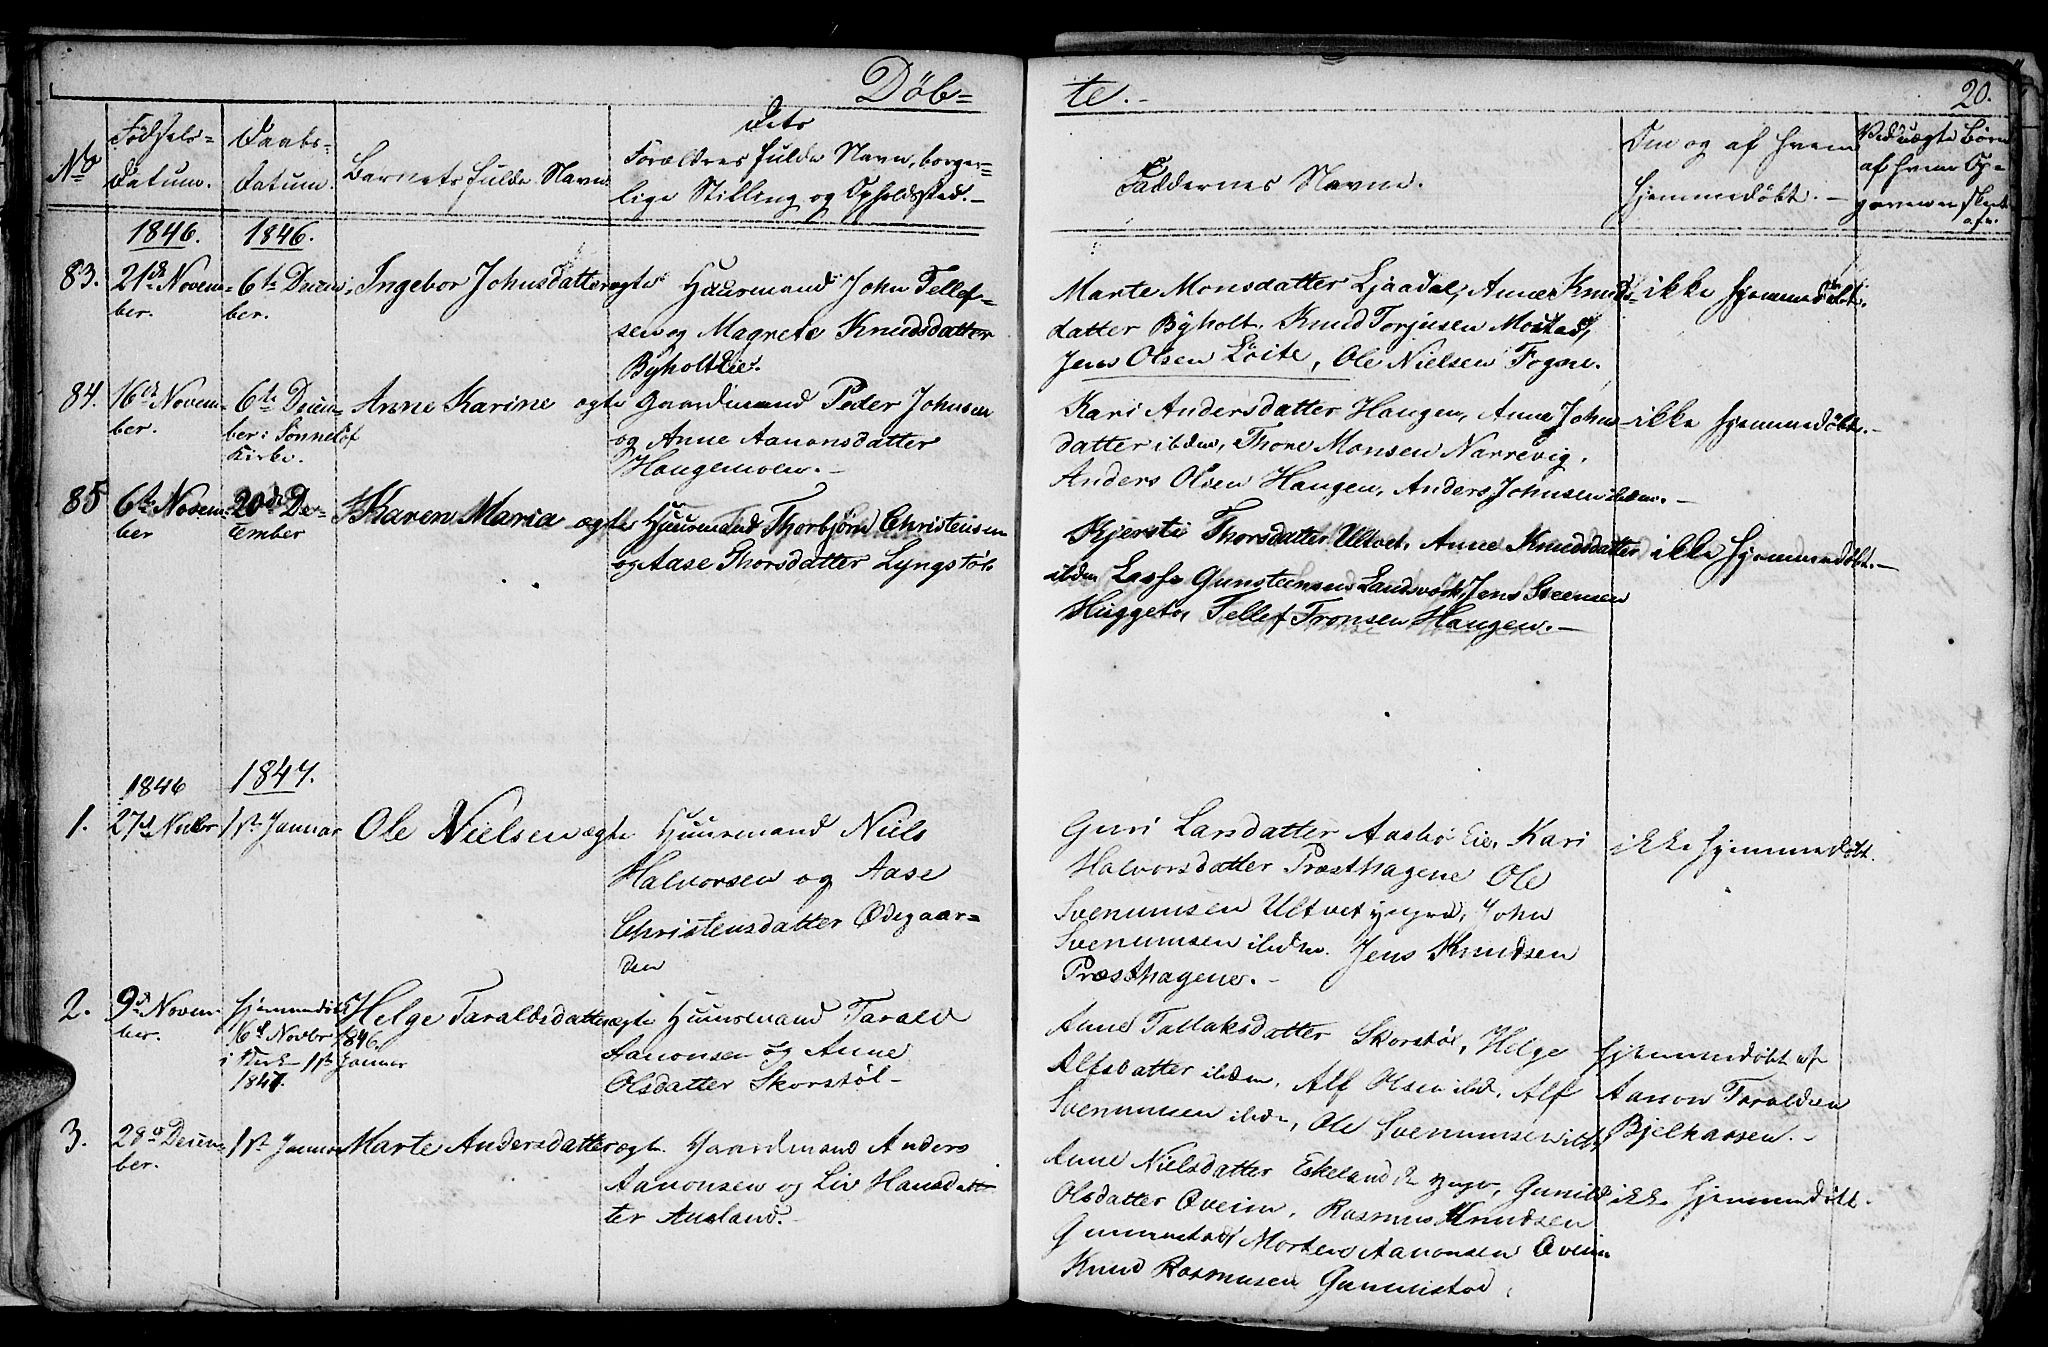 Döb=
te.-
20.
No
Fødsels=
Datum.
Daabs-
Datum.
Barnets fulde Navn
dets
Forældres fulde Navn, borger-
lige Stilling og Opholdssted.-
Faddernes Navne.
Om og af hvem
hjemmedøbt.-
Ved uægte Børn
af hvem Op-
1846.
1846.
83.
21de Novem=
ber.
6te Decem
ber.
Ingebor Johnsdatter
ægte Huusmand John Tellef-
sen og Magrete Knudsdatter
Byholt Eie.
Marte Monsdatter Ljaadal, Anne Knuds-
datter Byholt, Knud Torjusen Mostad,
Jens Olsen Løite, Ole Nielsen Fogne.
ikke hjemmedøbt.
84.
16de Novem-
ber.
6te Decem-
ber i Sønneløf
Kirke.
Anne Karine
ægte Gaardmand Peder Johnsen
og Anne Aanonsdatter
Haugemoen.-
Kari Andersdatter Haugen, Anne John-
datter ibdm, Thore Monsen Narrevig,
Anders Olsen Haugen, Anders Johnsen ibdm.-
ikke hjemmedøbt.-
85
6te Novem-
ber
20de De-
cember
Karen Maria
ægte Huusmand Thorbjørn Christensen
og Aase Thorsdatter Lyngstøl
Kjersti Thorsdatter Ultvet, Anne Knudsdatter
ibdm Lasse Gunsteensen Landsværk, Jens Steensen
Huggeto, Tellef Tronsen Haugen.-
ikke hjemmedøbt.-
1846
1847.
1.
27de Novbr
1ste Januar
Ole Nielsen
ægte Huusmand Niels
Halvorsen og Aase
Christensdatter Ødegaar-
den
Guri Larsdatter Aasbø Eie, Kari
Halvorsdatter Præsthagene Ole
Svenumsen Ultvet yngre, John
Svenumsen ibdm. Jens Knudsen
Præsthagene.-
ikke hjemmedøbt.
2.
9de Novem-
ber.
hjemmedøbt
16de Novbr 1846.
i Kirk- 1ste Januar
1847.
Helge Taraldsdatter
ægte Huusmand Tarald
Aanonsen og Anne
Olsdatter Skorstøl-
Anne Tallaksdatter Skorstøl, Helge
Alfsdatter ibdm, Alf Olsen ibd, Alf
Svenumsen ibdm, Ole Svenumsen ibd,
hjemmedøbt af
Aanon Taraldsen
Bjelkaasen.-
3.
28de Decem-
ber.
1ste Januar
Marte Andersdatter
ægte Gaardmand Anders
Aanonsen og Liv Hansdat-
ter Ausland.-
Anne Nielsdatter Eskeland d. yngr, Gunild
Olsdatter Øveim, Rasmus Knudsen
Gunnustad, Morten Aanonsen Øveim
Knud Rasmusen Gunnustad,
ikke hjemmedøbt.